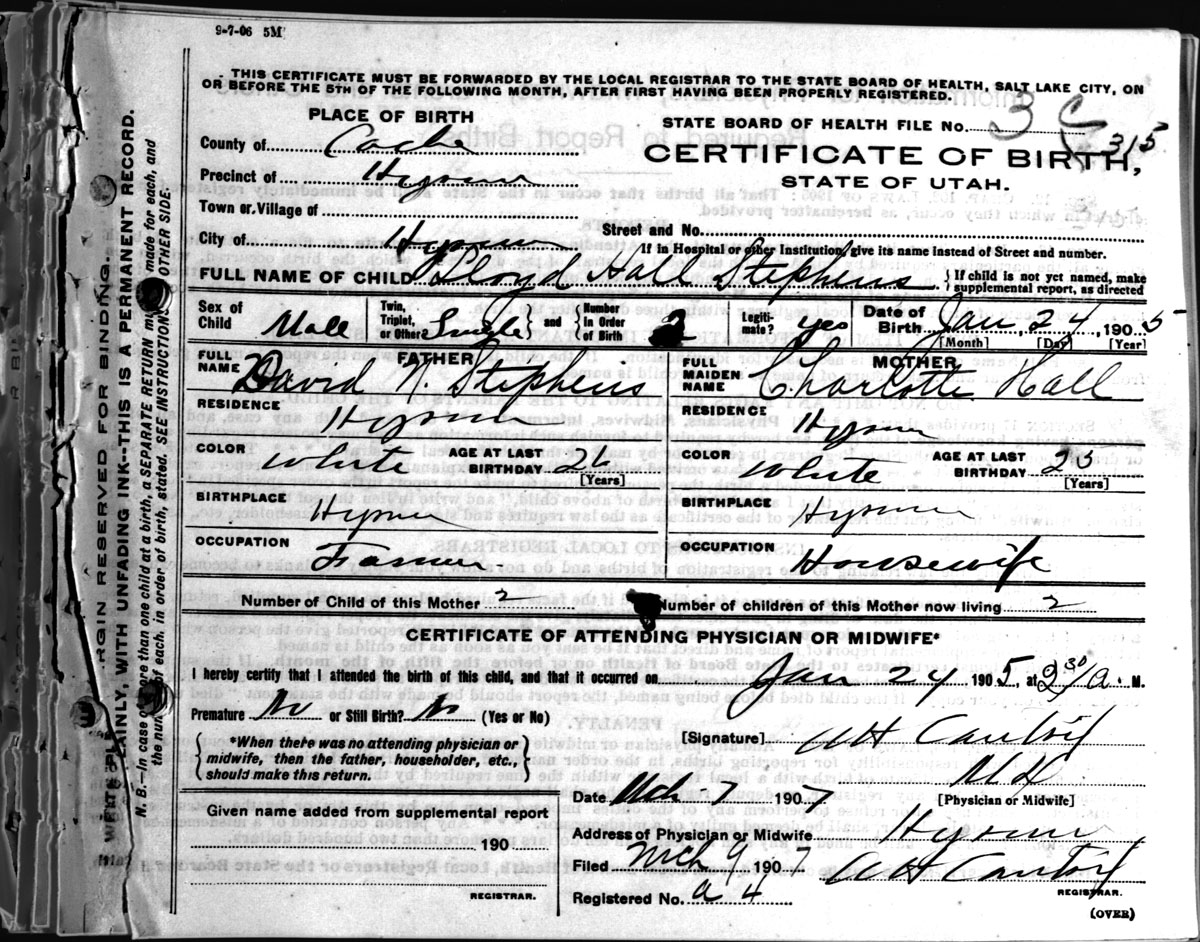 9-7-06 5M
THIS CERTIFICATE MUST BE FORWARDED BY THE LOCAL REGISTRAR TO THE STATE BOARD OF HEALTH, SALT LAKE CITY, ON
OR BEFORE THE 5TH OF THE FOLLOWING MONTH, AFTER FIRST HAVING BEEN PROPERLY REGISTERED.
PLACE OF BIRTH
STATE BOARD OF HEALTH FILE No. 3
315
County of Cache
CERTIFICATE OF BIRTH,
Precinct of Hyrum
STATE OF UTAH.
Town or Village of
Street and No.
City of Hyrum
If in Hospital or other Institution give its name instead of Street and number.
FULL NAME OF CHILD Lloyd Hall Stephens { If child is not yet named, make
supplemental report, as directed
Sex of Child Male
Twin, Triplet, or Other Single } and { Number in Order of Birth
Legitimate? yes
Date of Birth Jan, 24, 1905
[Month] [Day] [Year]
FATHER
FULL NAME David N. Stephens
MOTHER
FULL MAIDEN NAME Charlotte Hall
RESIDENCE Hyrum
RESIDENCE Hyrum
COLOR White AGE AT LAST BIRTHDAY 26 [Years]
COLOR White AGE AT LAST BIRTHDAY 25 [Years]
BIRTHPLACE Hyrum
BIRTHPLACE Hyrum
OCCUPATION Farmer
OCCUPATION Housewife
Number of Child of this Mother 2
Number of children of this Mother now living 2
CERTIFICATE OF ATTENDING PHYSICIAN OR MIDWIFE*
I hereby certify that I attended the birth of this child, and that it occurred on Jan 24 1905, at 2 30/a. M.
Premature No or Still Birth? No (Yes or No)
{ *When there was no attending physician or
midwife, then the father, householder, etc.,
should make this return. }
[Signature] M D
[Physician or Midwife]
Date Mch 7 1907
Given name added from supplemental report
190
REGISTRAR.
Address of Physician or Midwife Hyrum
Filed Mch 9 1907
REGISTRAR.
Registered No. a 4
(OVER)
MARGIN RESERVED FOR BINDING.
WRITE PLAINLY, WITH UNFADING INK--THIS IS A PERMANENT RECORD.
N. B.—In case of more than one child at a birth, a SEPARATE RETURN must be made for each, and
the number of each, in order of birth, stated. SEE INSTRUCTIONS OTHER SIDE.